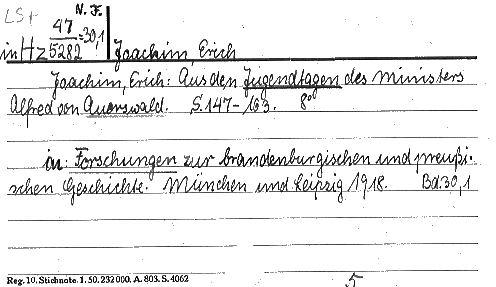 LS+
N. F.
in Hz 47/5282 = 30,1 Joachim, Erich
Joachim, Erich: Aus den Jugendtagen des Ministers
Alfred von Auerswald. S. 147-163. 8°
in: Forschungen zur brandenburgischen und preußi-
schen Geschichte. München und Leipzig 1918. Bd. 30,1
Reg. 10. Stichnote. 1. 50. 232 000. A. 803. S. 4062
5